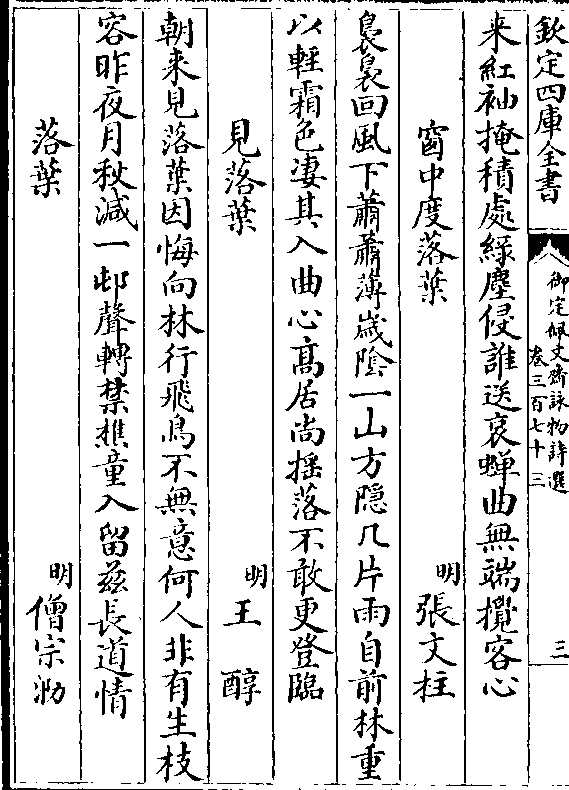 欽定四庫全書
御定佩文齋詠物詩選
卷三百七十三
三
来紅袖掩積處緑塵侵誰送哀蟬曲無端攪客心
窗中度落葉
明張文柱
裊裊回風下蕭蕭薄嵗陰一山方隠几片雨自前林重
以輕霜色凄其入曲心髙居尚揺落不敢更登臨
見落葉
明王醇
朝来見落葉因悔向林行飛鳥不無意何人非有生枝
容昨夜月秋減一邨聲轉禁樵童入留兹長道情
落葉
明僧宗泐